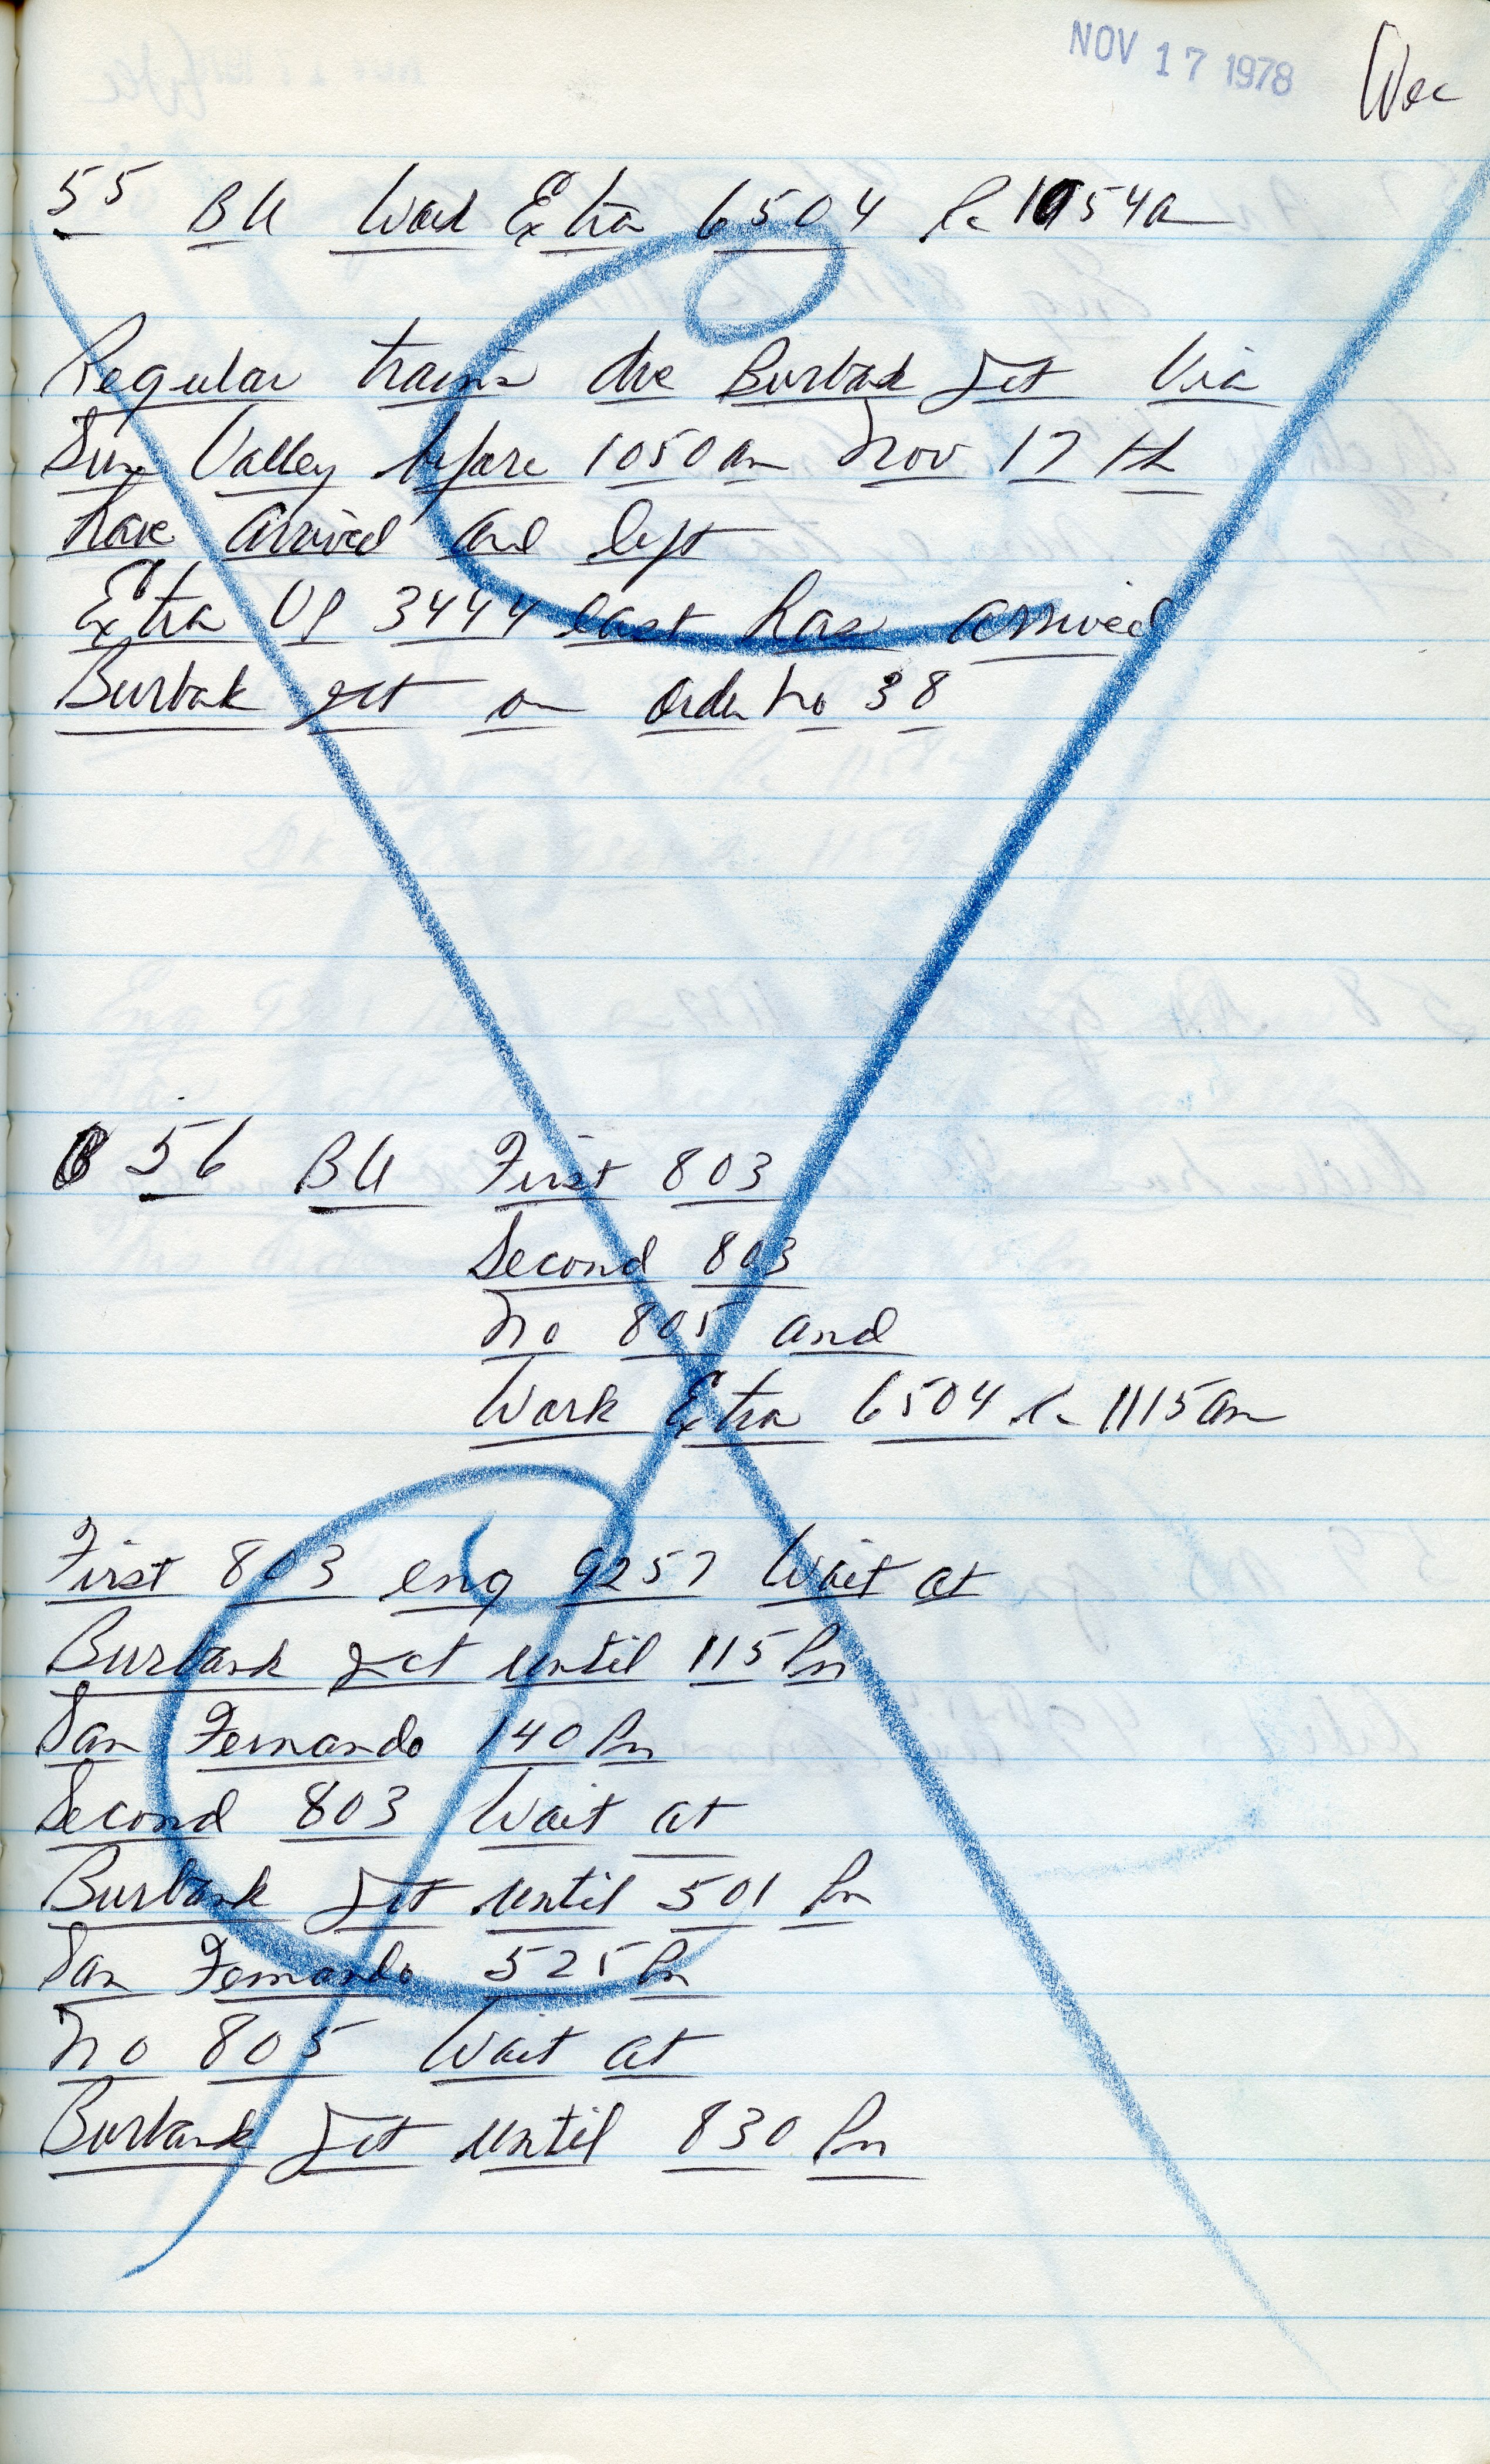 NOV 17 1978
55 BU Work Extra 6504 1054a
Regular trains due Burbank Jct Via
Sun Valley before 1050am Nov 17 th
have arrived and left
Extra UP 3444 east has arrived
Burbank Jct on order No 38
56 BU First 803
Second 803
No 805 and
Work Extra 6504 1115am
First 803 eng 9257 Wait at
Burbank Jct until 115 Pm
San Fernando 140 Pm
Second 803 Wait at
Burbank Jct until 501 Pm
San Fernando 525 Pm
No 805 Wait at
Burbank Jct until 830 Pm